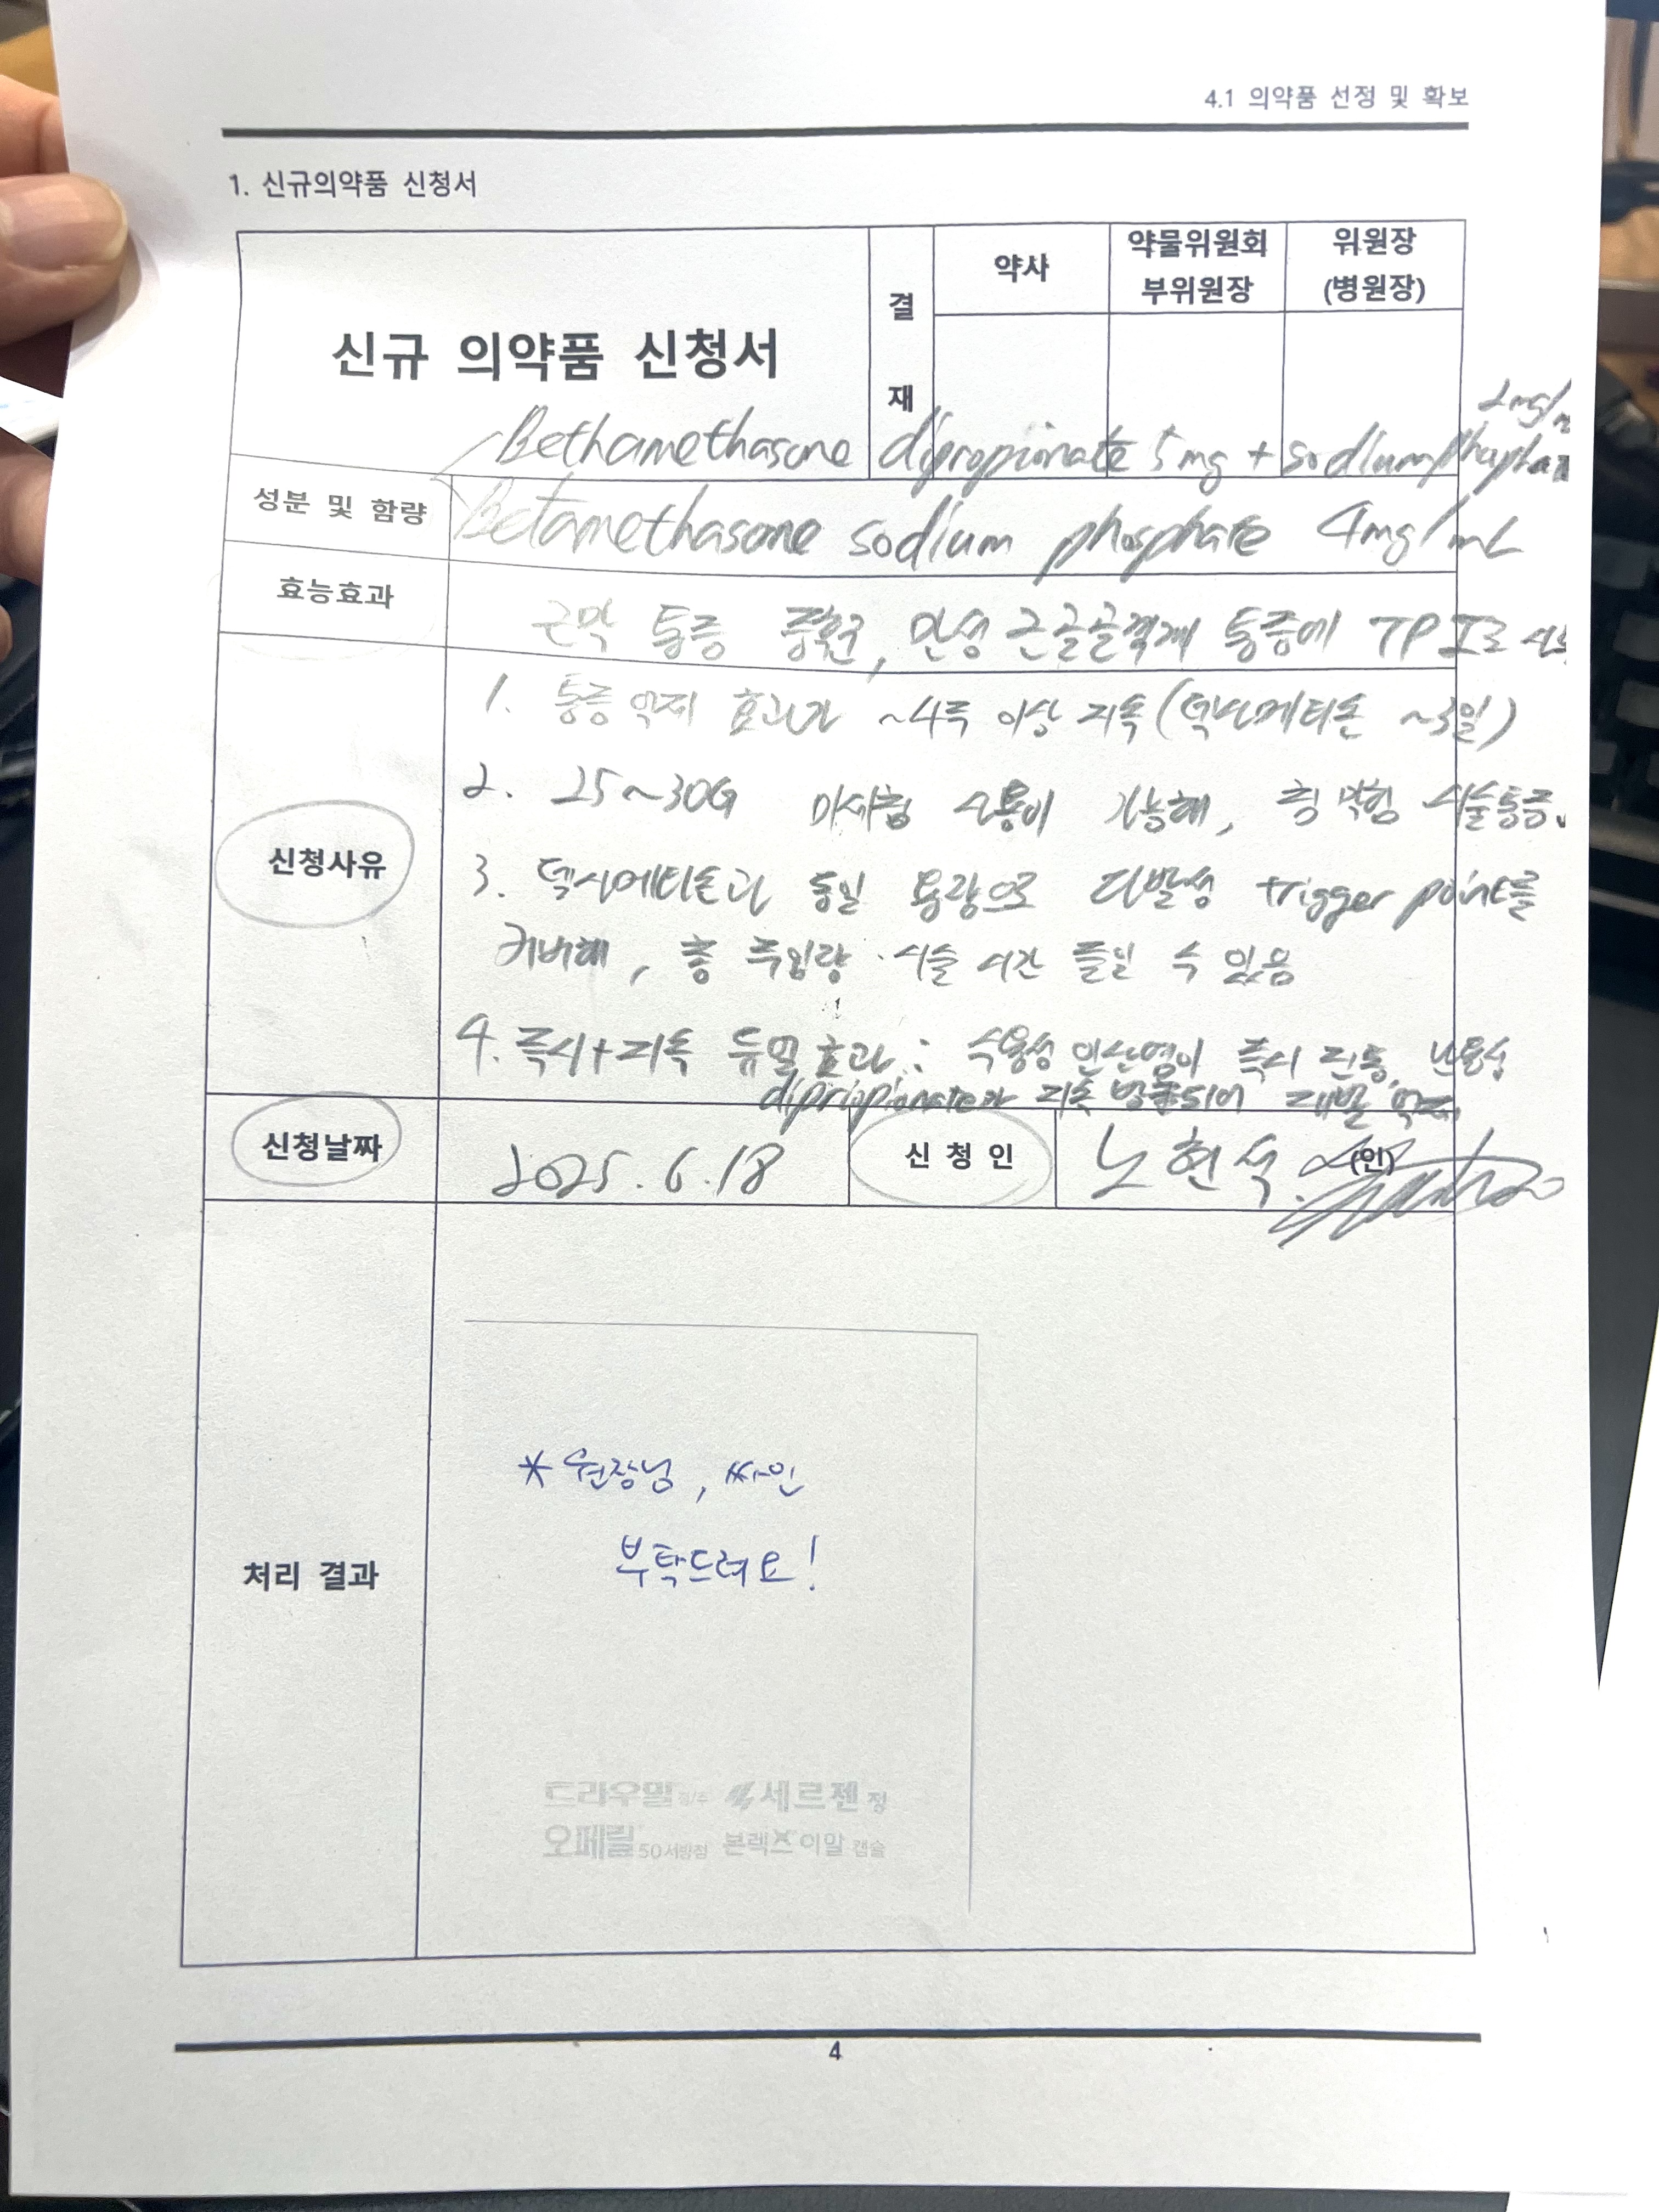 4.1 의약품 선정 및 확보
1. 신규의약품 신청서
신규 의약품 신청서
결재
약사
약물위원회 부위원장
위원장 (병원장)
2mg/m
Bethamethasone dipropionate 5mg + sodium phospha
성분 및 함량
Betamethasone sodium phosphate 4mg/mL
효능효과
근막 통증 증후군, 만성 근골격계 통증에 TPI로
신청사유
1. 통증 억제 효과가 ~4주 이상 지속 (덱사메타손 ~3일)
2. 25~30G 미세침 사용이 가능해, 침 막힘 시술통증
3. 덱사메타손과 동일 용량으로 다발성 trigger point를
커버해, 총 주입량·시술 시간 줄일 수 있음
4. 즉시+지속 듀얼 효과 : 수용성 인산염이 즉시 진통, 난용성
dipriopionate가 지속 방출되어 재발 억제
신청날짜
2025.6.18
신청인
노현석
(인)
처리 결과
* 원장님, 싸인
부탁드려요!
드라우밀 정/주 세르젠 정
오페릴 50서방정 본렉스이알 캡슐
4